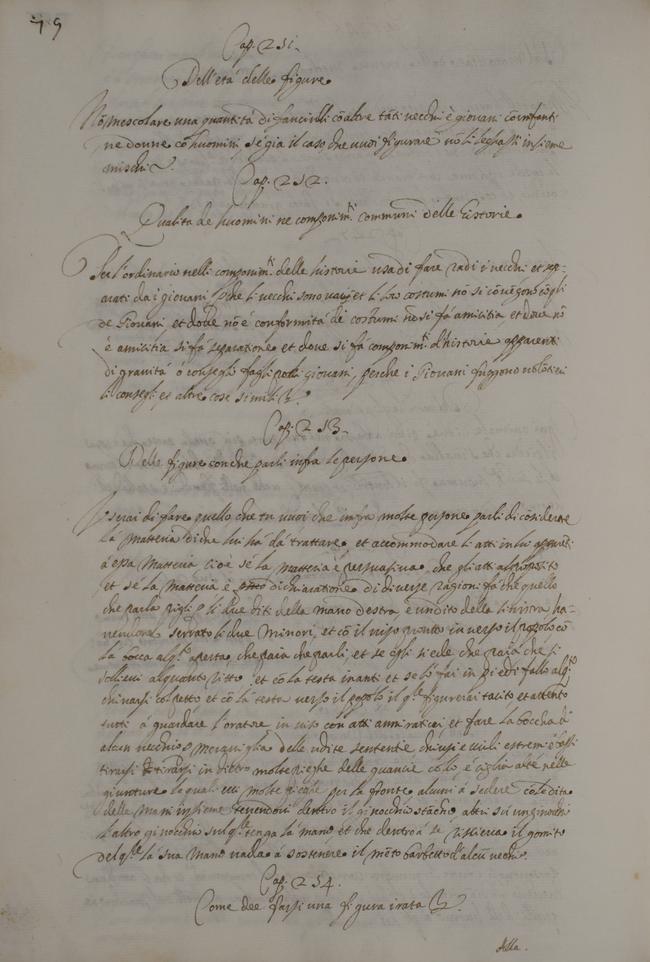 79
Cap. 251.
Dell'età delle figure.
Nõ mescolare una quantità di fanciulli cõ altre tãti vecchi è giovani cõ infanti
ne donne cõ huomini, sè già il caso che vuoi figurare nõ li legassi insieme
mischi
Cap. 252.
Qualità de huomini ne componim.ti communi delle Historie.
Per l'ordinario nelli componim.ti delle historie usa di fare radi i vecchi et sep-
arati da i giovani, perche li vecchi sono rari et li loro costumi nõ si cõvegono cõ qlli
de Giovani, et dove nõ è conformità di costumi nõ si fà amicitia et dove nõ
è amicitia si fà separatione. et dove si fà componim.ti d'historie apparenti
di gravità ò consegli fagli pochi giovani, perche i Giovani fuggono volotieri
li consegli et altre cose simili
Cap. 253.
Delle figure con che parli infra le persone.
Userai di fare quello che tu vuoi che infra molte persone parli di cõsiderare
la matteria di che lui hà dà trattare. et accommodare li atti in lui appartẽti
à essa matteria, cioè sè la matteria è persuasiva che gli atti al proposito
et sè la matteria è dichiaratione di diverse ragioni fà che quello
che parla pigli p li due diti della mano destra è un dito della sinistra ha-
vendone serrato li due minori, et cõ il viso pronto in verso il popolo cõ
la bocca alqto aperta, che paia che parli, et se egli siede che paia che si
sollievi alquanto ritto, et cõ la testa inanti et se lo fai in piedi fallo alqto
chinarsi col petto et cõ la testa verso il popolo il qle figurerai tacito et attento
tutti à guardare l'oratore in viso con atti amirativi, et fare la boccha di
alcun vecchio p meraviglia delle udite sententie
tirarsi in dietro molte pieghe delle guancie cõ le ciglia alte nelle
giunture le quali molte pieghe per la fronte, alcuni à sedere cõ le dita
delle mani insieme tenendovi dentro il ginocchio stãcho, altri
l'altro ginocchio sul qle tenga la mano et che dentro à se riceva il gomito
del qle la sua mano vada à sostenere il mẽto barbetto d'alcũ vecchio.
Cap. 254.
Come dee farsi una figura irata
Alla.